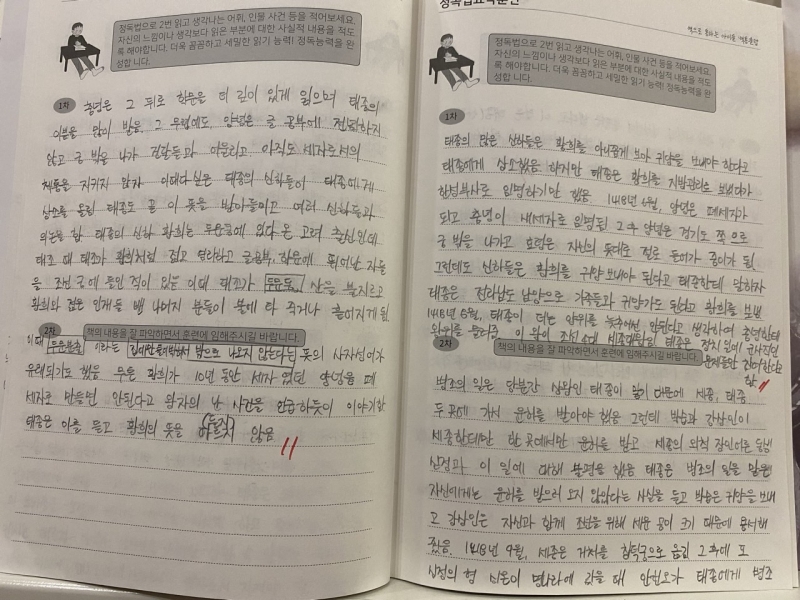 정독법으로 2번 읽고 생각나는 어휘, 인물 사건 등을 적어보세요.
자신의 느낌이나 생각보다 읽은 부분에 대한 사실적 내용을 적도
록 해야합니다. 더욱 꼼꼼하고 세밀한 읽기 능력! 정독능력을 완
성합니다.
1차
충녕은 그 뒤로 학문을 더 깊이 있게 읽으며 태종의
이쁨을 많이 받음. 그 무렵에도 양녕은 글 공부에 전념하지
않고 궁 밖을 나가 건달들과 어울리고 아직도 세자로서의
체통을 지키지 않자 이때다 싶은 태종의 신하들이 태종에게
상소를 올림 태종도 끝 이 뜻을 받아들이고 여러 신하들과
의논을 함. 태종의 신하 황희는 두문골에 있다 온 고려 충신인데
태조 때 태조가 황희처럼 젊고 영리하고 글공부, 학문에 뛰어난 자들
을 조선 궁에 들인 적이 있음 이때 태조가 두문동 산을 불지르고
황희와 젊은 인재들 빼 나머지 분들이 불에 타 죽거나 흩어지게 됨
2차
책의 내용을 잘 파악하면서 훈련에 임해주시길 바랍니다.
이때 두문불출 이라는 집에만 틀어박혀서 밖으로 나오지 않는다는 뜻의 사자성어가
유래되기도 했음 무튼 황희가 10년 동안 세자 였던 양녕을 폐
세자로 만들면 안된다고 왕자의 난 사건을 언급하듯이 이야기함
태종은 이를 듣고 황희의 뜻을 않음
정독법으로 2번 읽고 생각나는 어휘, 인물 사건 등을 적어보세요.
자신의 느낌이나 생각보다 읽은 부분에 대한 사실적 내용을 적도
록 해야합니다. 더욱 꼼꼼하고 세밀한 읽기 능력! 정독능력을 완
성합니다.
1차
태종의 많은 신하들은 황희를 아니꼽게 보아 귀양을 보내야 한다고
태종에게 상소했음 하지만 태종은 황희를 지방관리로 보냈다가
한성부사로 임명하기만 했음. 1418년 6월, 양녕은 폐세자가
되고 충녕이 새세자로 임명됨 그후 양녕은 경기도 쪽으로
궁 밖을 나가고 효령은 자신의 뜻대로 절로 들어가 중이 됨.
그런데도 신하들은 황희를 귀양 보내야 된다고 태종한테 말하자
태종은 전라남도 남양으로 가족들과 귀양가도 된다고 황희를 보냄
1418년 8월, 태종이 더는 양위를 늦추어선 안된다고 생각하여 충녕한테
왕위를 물려줌. 이 왕이 조선 4대 세종대왕임 태종은 정치 일에 군사적인
문제들만 관여한다고
함
2차
책의 내용을 잘 파악하면서 훈련에 임해주시길 바랍니다.
병조의 일은 당분간 상왕인 태종이 맡기 때문에 세종, 태종
두 곳에 가서 윤허를 받아야 했음 그런데 박습과 강상인이
세종한테만 한 곳에서만 윤허를 받고 세종의 외척 장인어른
심정과 이 일에 대해 불평을 했음 태종은 병조의 일을 맡은
자신에게는 윤허를 받으러 오지 않았다는 사실을 듣고 박습은 귀양을 보내
고 강상인은 자신과 함께 조선을 위해 세운 공이 크기 때문에 용서해
줬음. 1418년 9월, 세종은 거처를 창덕궁으로 옮김 그 후에 또
심정의 형 심온이 명나라에 갔을 때 안헌오가 태종에게 병조